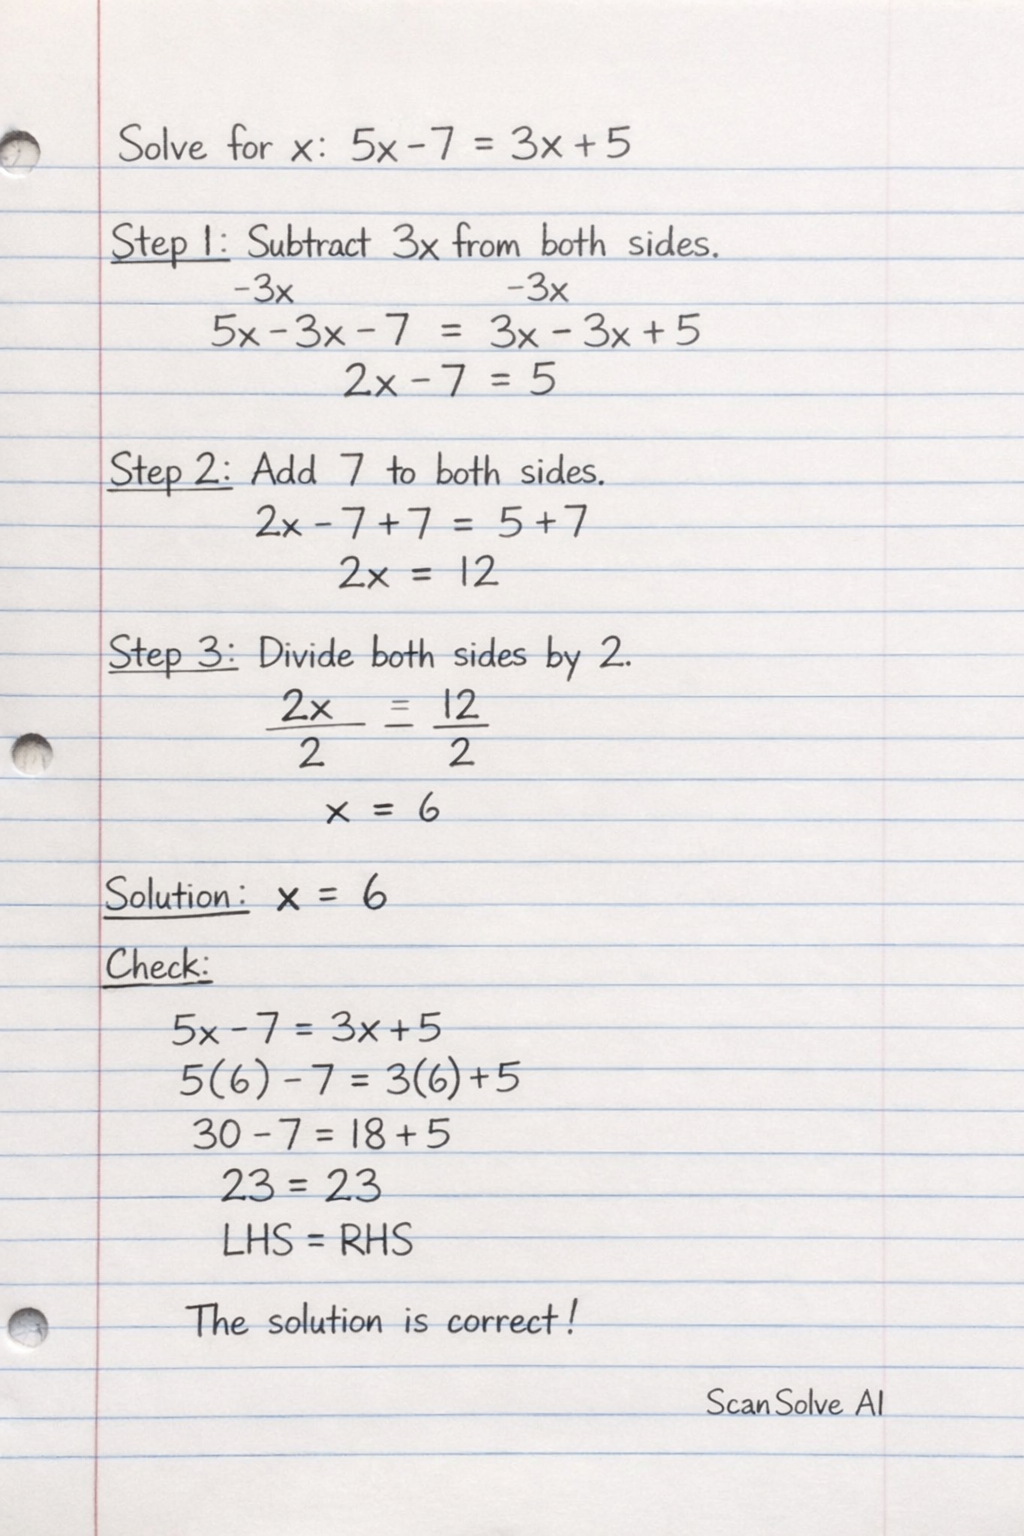 Solve for x: 5x - 7 = 3x + 5
Step 1: Subtract 3x from both sides.
-3x -3x
5x - 3x - 7 = 3x - 3x + 5
2x - 7 = 5
Step 2: Add 7 to both sides.
2x - 7 + 7 = 5 + 7
2x = 12
Step 3: Divide both sides by 2.
2x = 12
2 2
x = 6
Solution: x = 6
Check:
5x - 7 = 3x + 5
5(6) - 7 = 3(6) + 5
30 - 7 = 18 + 5
23 = 23
LHS = RHS
The solution is correct!
ScanSolve AI